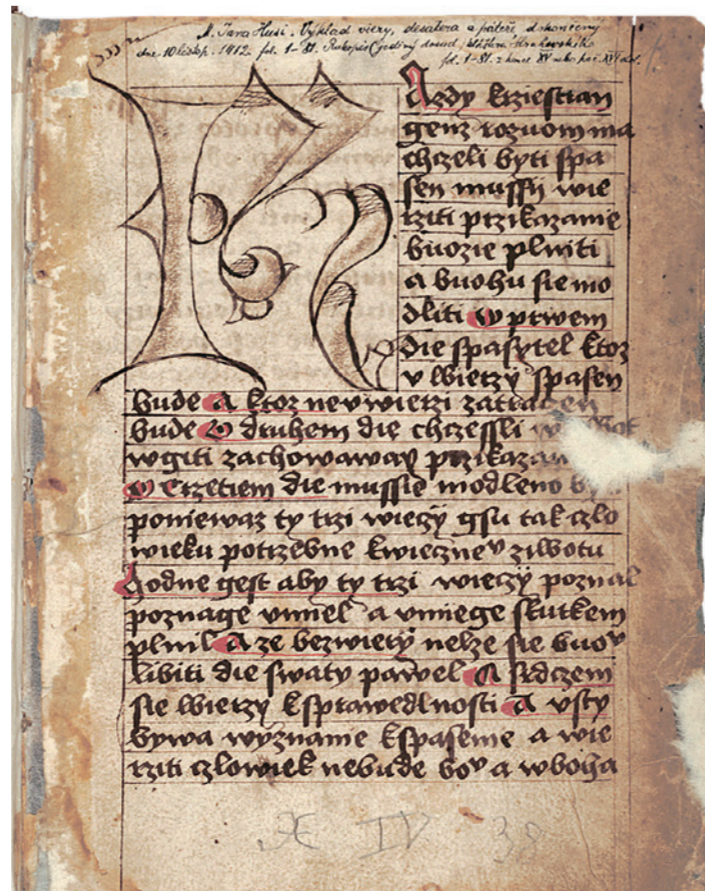 M. Jana Husi. Výklad viery, desatera a páteře dokonćený
dne 10 listop. 1412. fol. 1–81. Rukopis (jediný dosud) kláštera
fol. 1–81. z konce XV
K
Azdy krziestian
genz rozuom ma
chczeli byti spa
sen mussij wie
rziti przikazanie
buozie plniti
a buohu sie mo
dliti W prwem
die spasytel ktoz
v wierzy spasen
bude A ktoz nevwierzi zatracen
bude W druhem die chczessli
wgiti zachowaway przikazan
W trzetiem die mussie modleno
poniewaz ty trzi wieczy gsu tak czlo
wieku potrzebne kwieczneᵛ ziwotu
hodne gest aby ty trzi wieczy poznal
poznage vmiel a vmiege skutkem
plnil A ze bezwiery nelze sie buoᵛ
libiti die swaty pawel A srdczem
sie wierzy ksprawedlnosti A vsty
bywa wyznanie kspasenie a wie
rziti czlowiek nebude boᵛ a wboha
XE IV 38